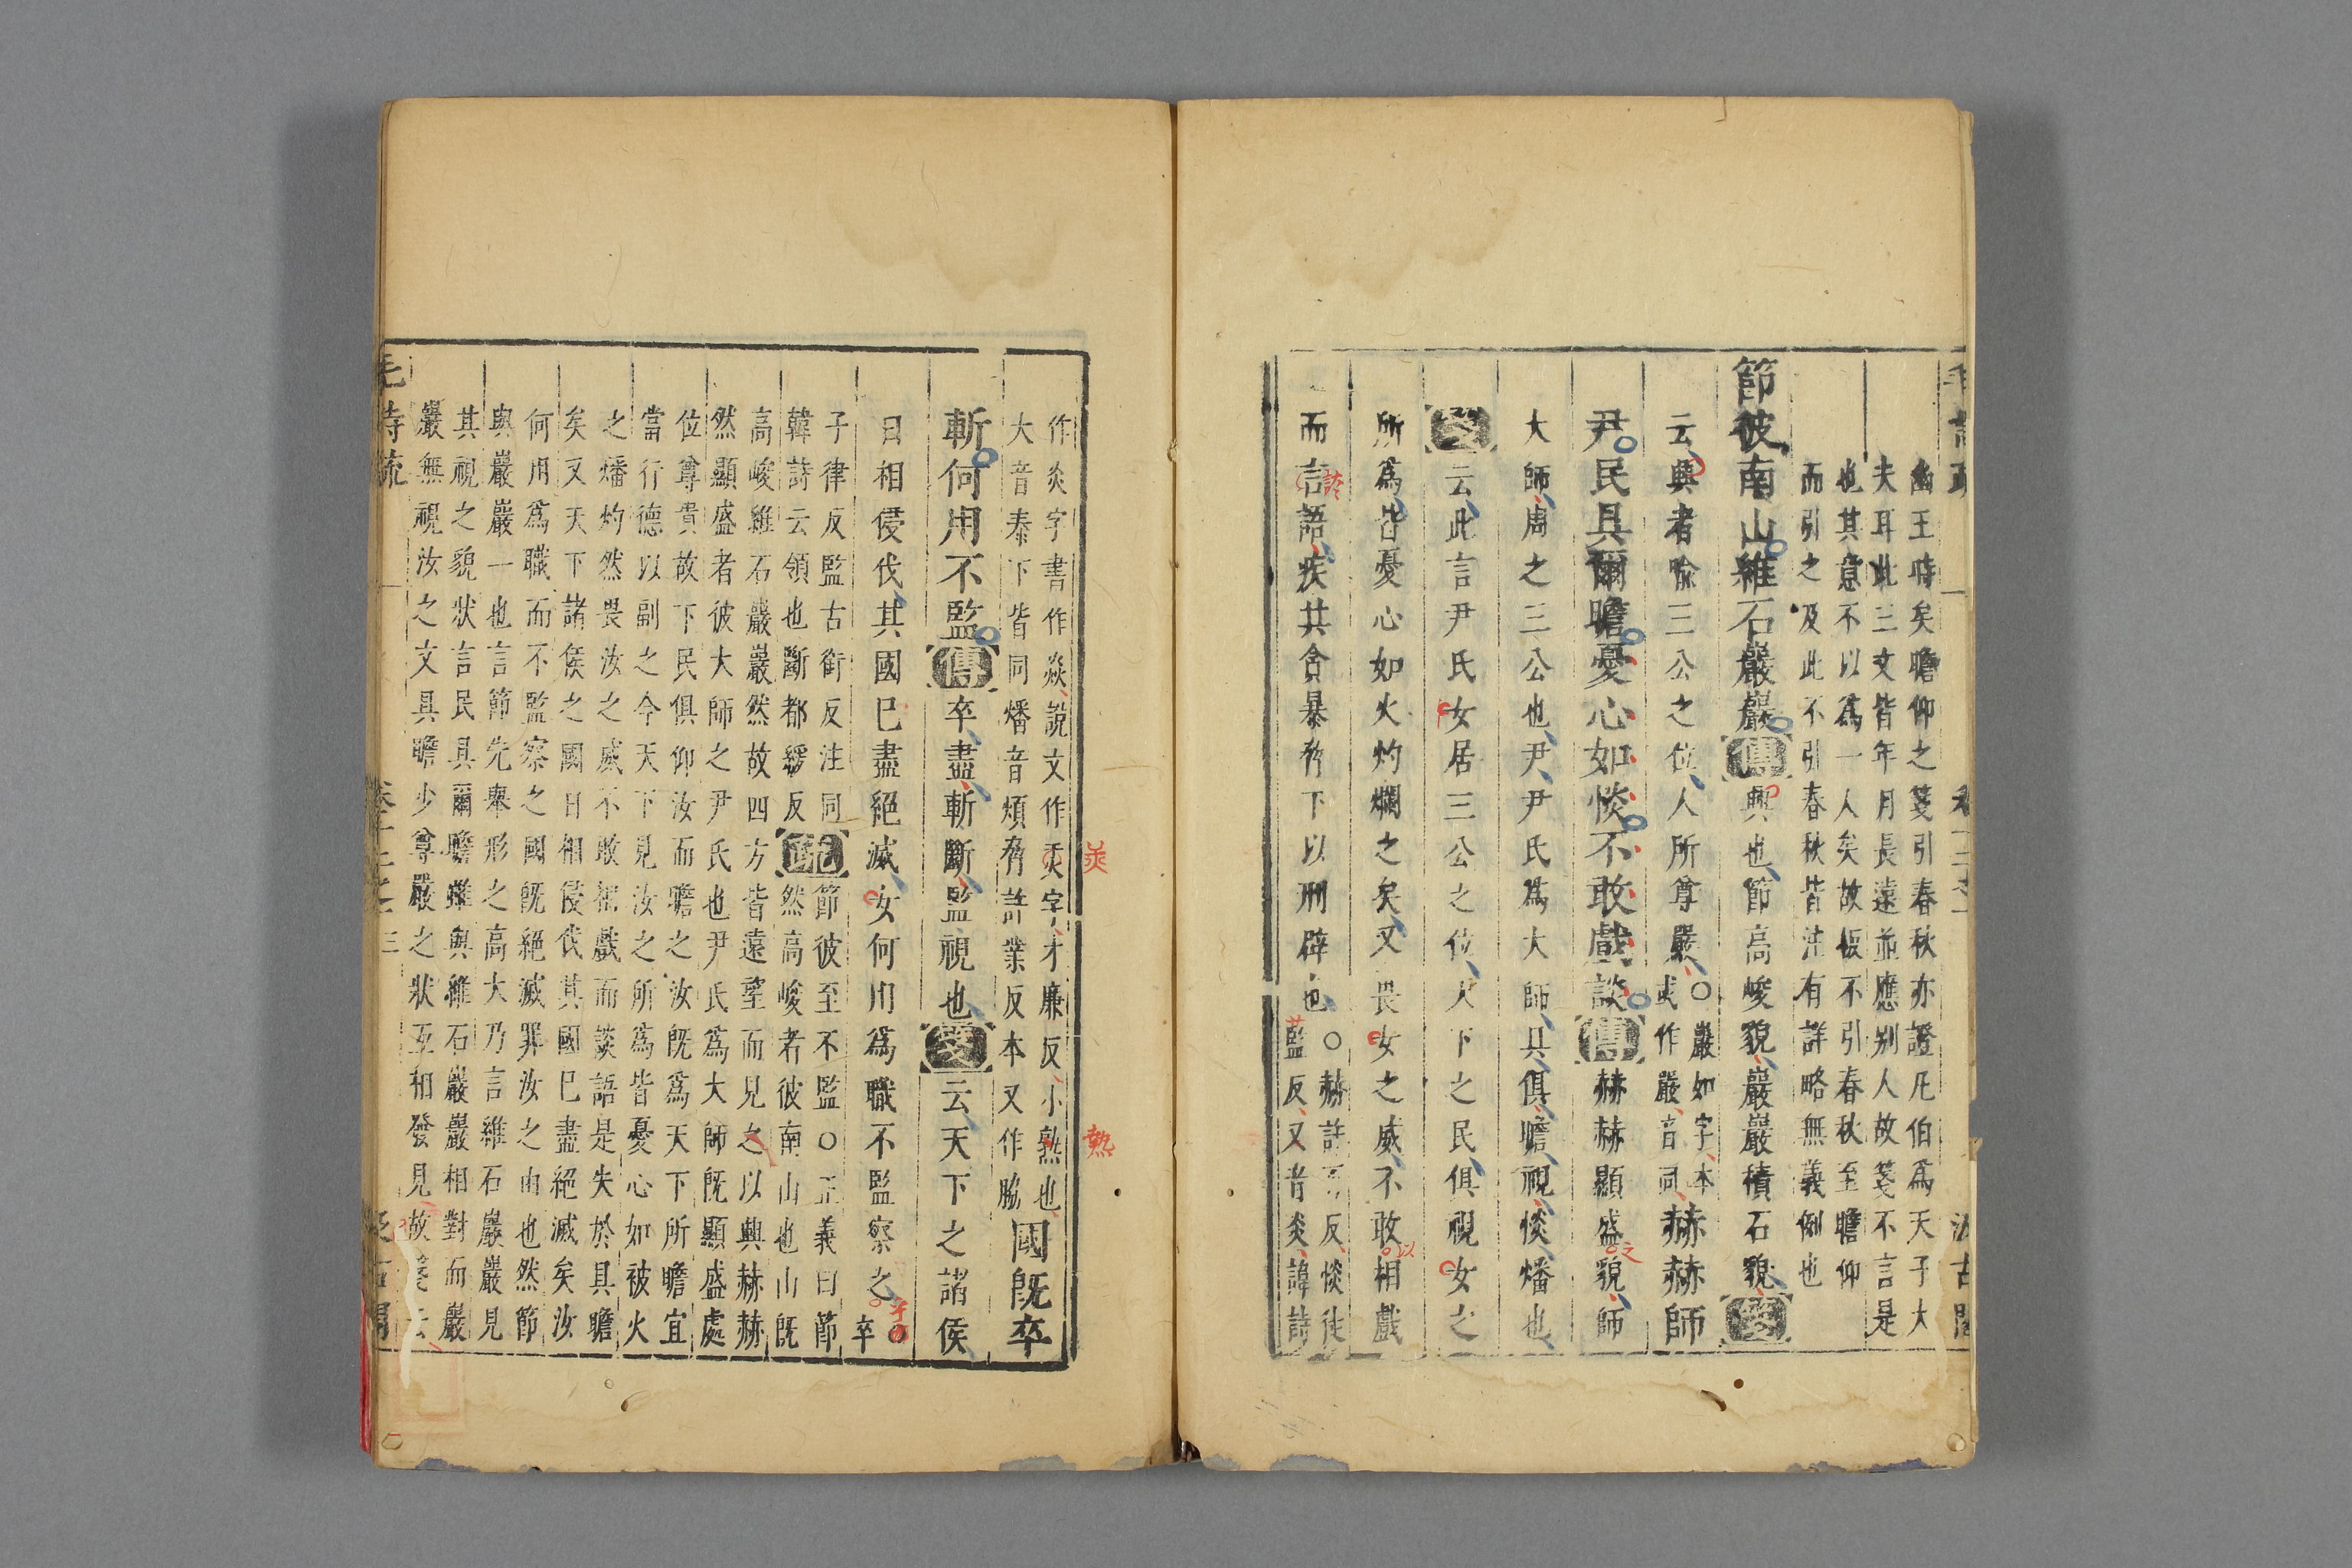 幽王時矣瞻仰之箋引春秋亦證凡伯爲天子大
夫耳此三文皆年月長遠並應别人故箋不言是
也其意不以爲一人矣故板不引春秋至瞻仰
而引之及此不引春秋皆注有詳略無義例也
節彼南山維石巖巖傳興也節高峻貌巖巖積石貌箋
云興者喻三公之位人所尊嚴○巖如字本
或作嚴音同赫赫師
尹民具爾瞻憂心如惔不敢戲談傳赫赫顯盛貌師
大師周之三公也尹尹氏爲大師具俱瞻視惔燔也
箋云此言尹氏女居三公之位天下之民俱視女之
所爲皆憂心如火灼爛之矣又畏女之威不敢相戲
而言語疾其貪暴脅下以刑辟也○赫許百反惔徒
藍反又音炎韓詩
作炎字書作焱說文作㶣字才廉反小熱也
大音泰下皆同燔音煩脅許業反本又作脇國旣卒
斬何用不監傳卒盡斬斷監視也箋云天下之諸侯
日相侵伐其國已盡絕滅女何用爲職不監察之卒
子律反監古銜反注同
韓詩云領也斷都緩反疏節彼至不監○正義曰節
然高峻者彼南山也山旣
高峻維石巖巖然故四方皆遠望而見之以興赫赫
然顯盛者彼大師之尹氏也尹氏爲大師旣顯盛處
位尊貴故下民俱仰汝而瞻之汝旣爲天下所瞻宜
當行德以副之今天下見汝之所爲皆憂心如被火
之燔灼然畏汝之威不敢相戲而談語是失於具瞻
矣又天下諸侯之國日相侵伐其國已盡絕滅矣汝
何用爲職而不監察之國旣絕滅罪汝之由也然節
與巖巖一也言節先舉形之高大乃言維石巖巖見
其視之貌狀言民具爾瞻雖與維石巖巖相對而嚴
嚴無視汝之文具瞻少尊嚴之狀互相發見故箋云
毛詩疏
汲古閣